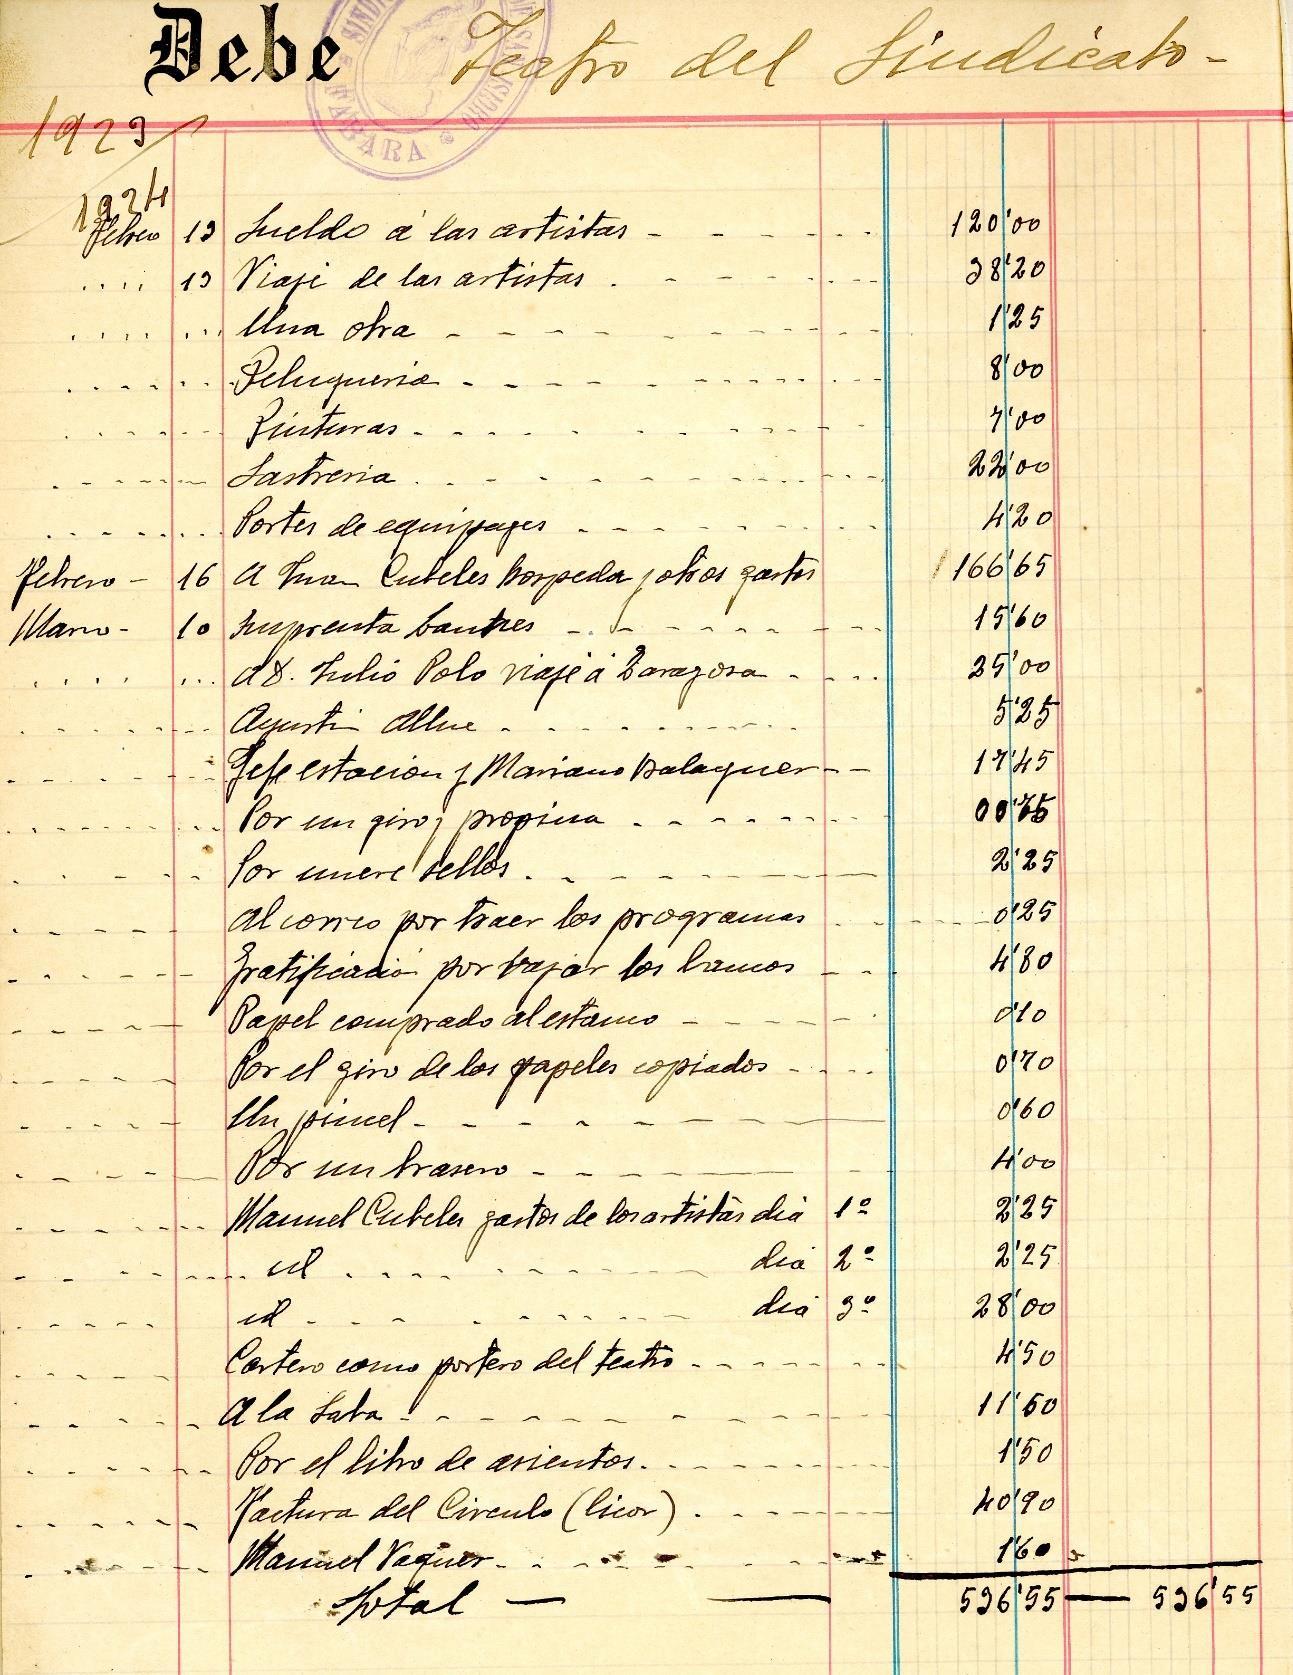 Debe Teatro del Sindicato -
SINDI
FABARA
1923
1924
Febrero 13 Sueldo á las artistas - 120'00
.... 13 Viaje de las artistas 38'20
Una obra 1'25
Peluqueria 8'00
Pinturas 7'00
Sastreria 22'00
Portes de equipages 4'20
Febrero - 16 A Cubeles hospeda y otros gastos 166'65
Marzo - 10 Imprenta Santres 15'60
A D. Julio Polo viaje á Zaragosa 25'00
Agusti Allue 5'25
Jefe estacion y Mariano Balaguer 17'45
Por un giro y propina 00'75
Por nueve sellos 2'25
Al correo por traer los programas 0'25
Gratificació por bajar los bancos 4'80
Papel comprado al estanco 0'10
Por el giro de los papeles copiados 0'70
Un pincel 0'60
Por un brasero 4'00
Manuel Cubeles gastos de los artistas dia 1º 2'25
id dia 2º 2'25
id dia 3º 28'00
Cartero como portero del teatro 4'50
A la Saba 11'50
Por el libro de asientos 1'50
Factura del Circulo (licor) 40'90
Manuel Vaquer 1'60
Total — 536'55 — 536'55